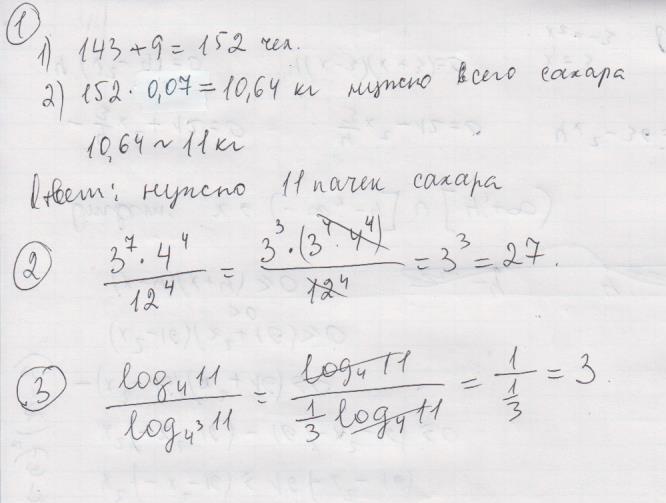 1
1) 143 + 9 = 152 чел.
2) 152 · 0,07 = 10,64 кг нужно всего сахара
10,64 ~ 11 кг
Ответ: нужно 11 пачек сахара
2 3^7 · 4^4 / 12^4 = 3^3 · (3^4 · 4^4) / 12^4 = 3^3 = 27.
3 log_4 11 / log_{4^3} 11 = log_4 11 / (1/3 log_4 11) = 1 / (1/3) = 3.